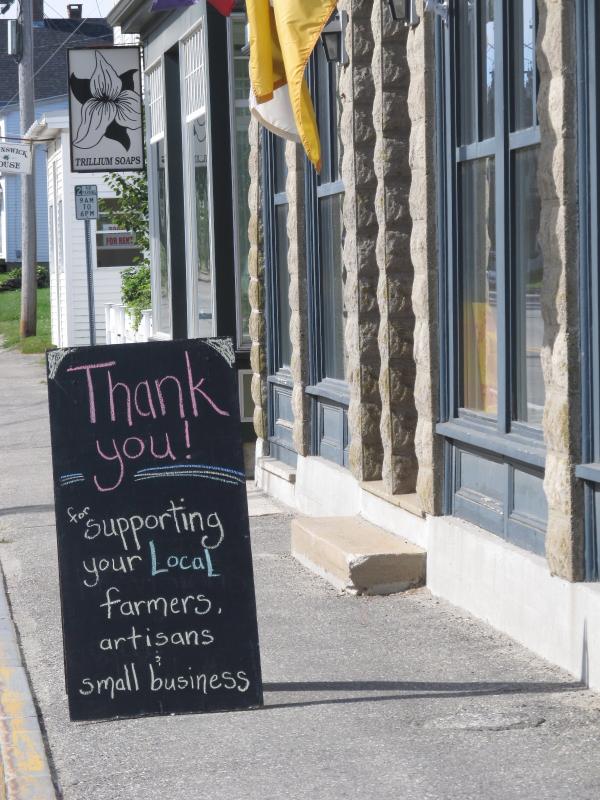 TRILLIUM SOAPS
NSWICK
OUSE
2
9AM
TO
6PM
FOR RENT
Thank
you!
for
supporting
your Local
farmers,
artisans
&
small business